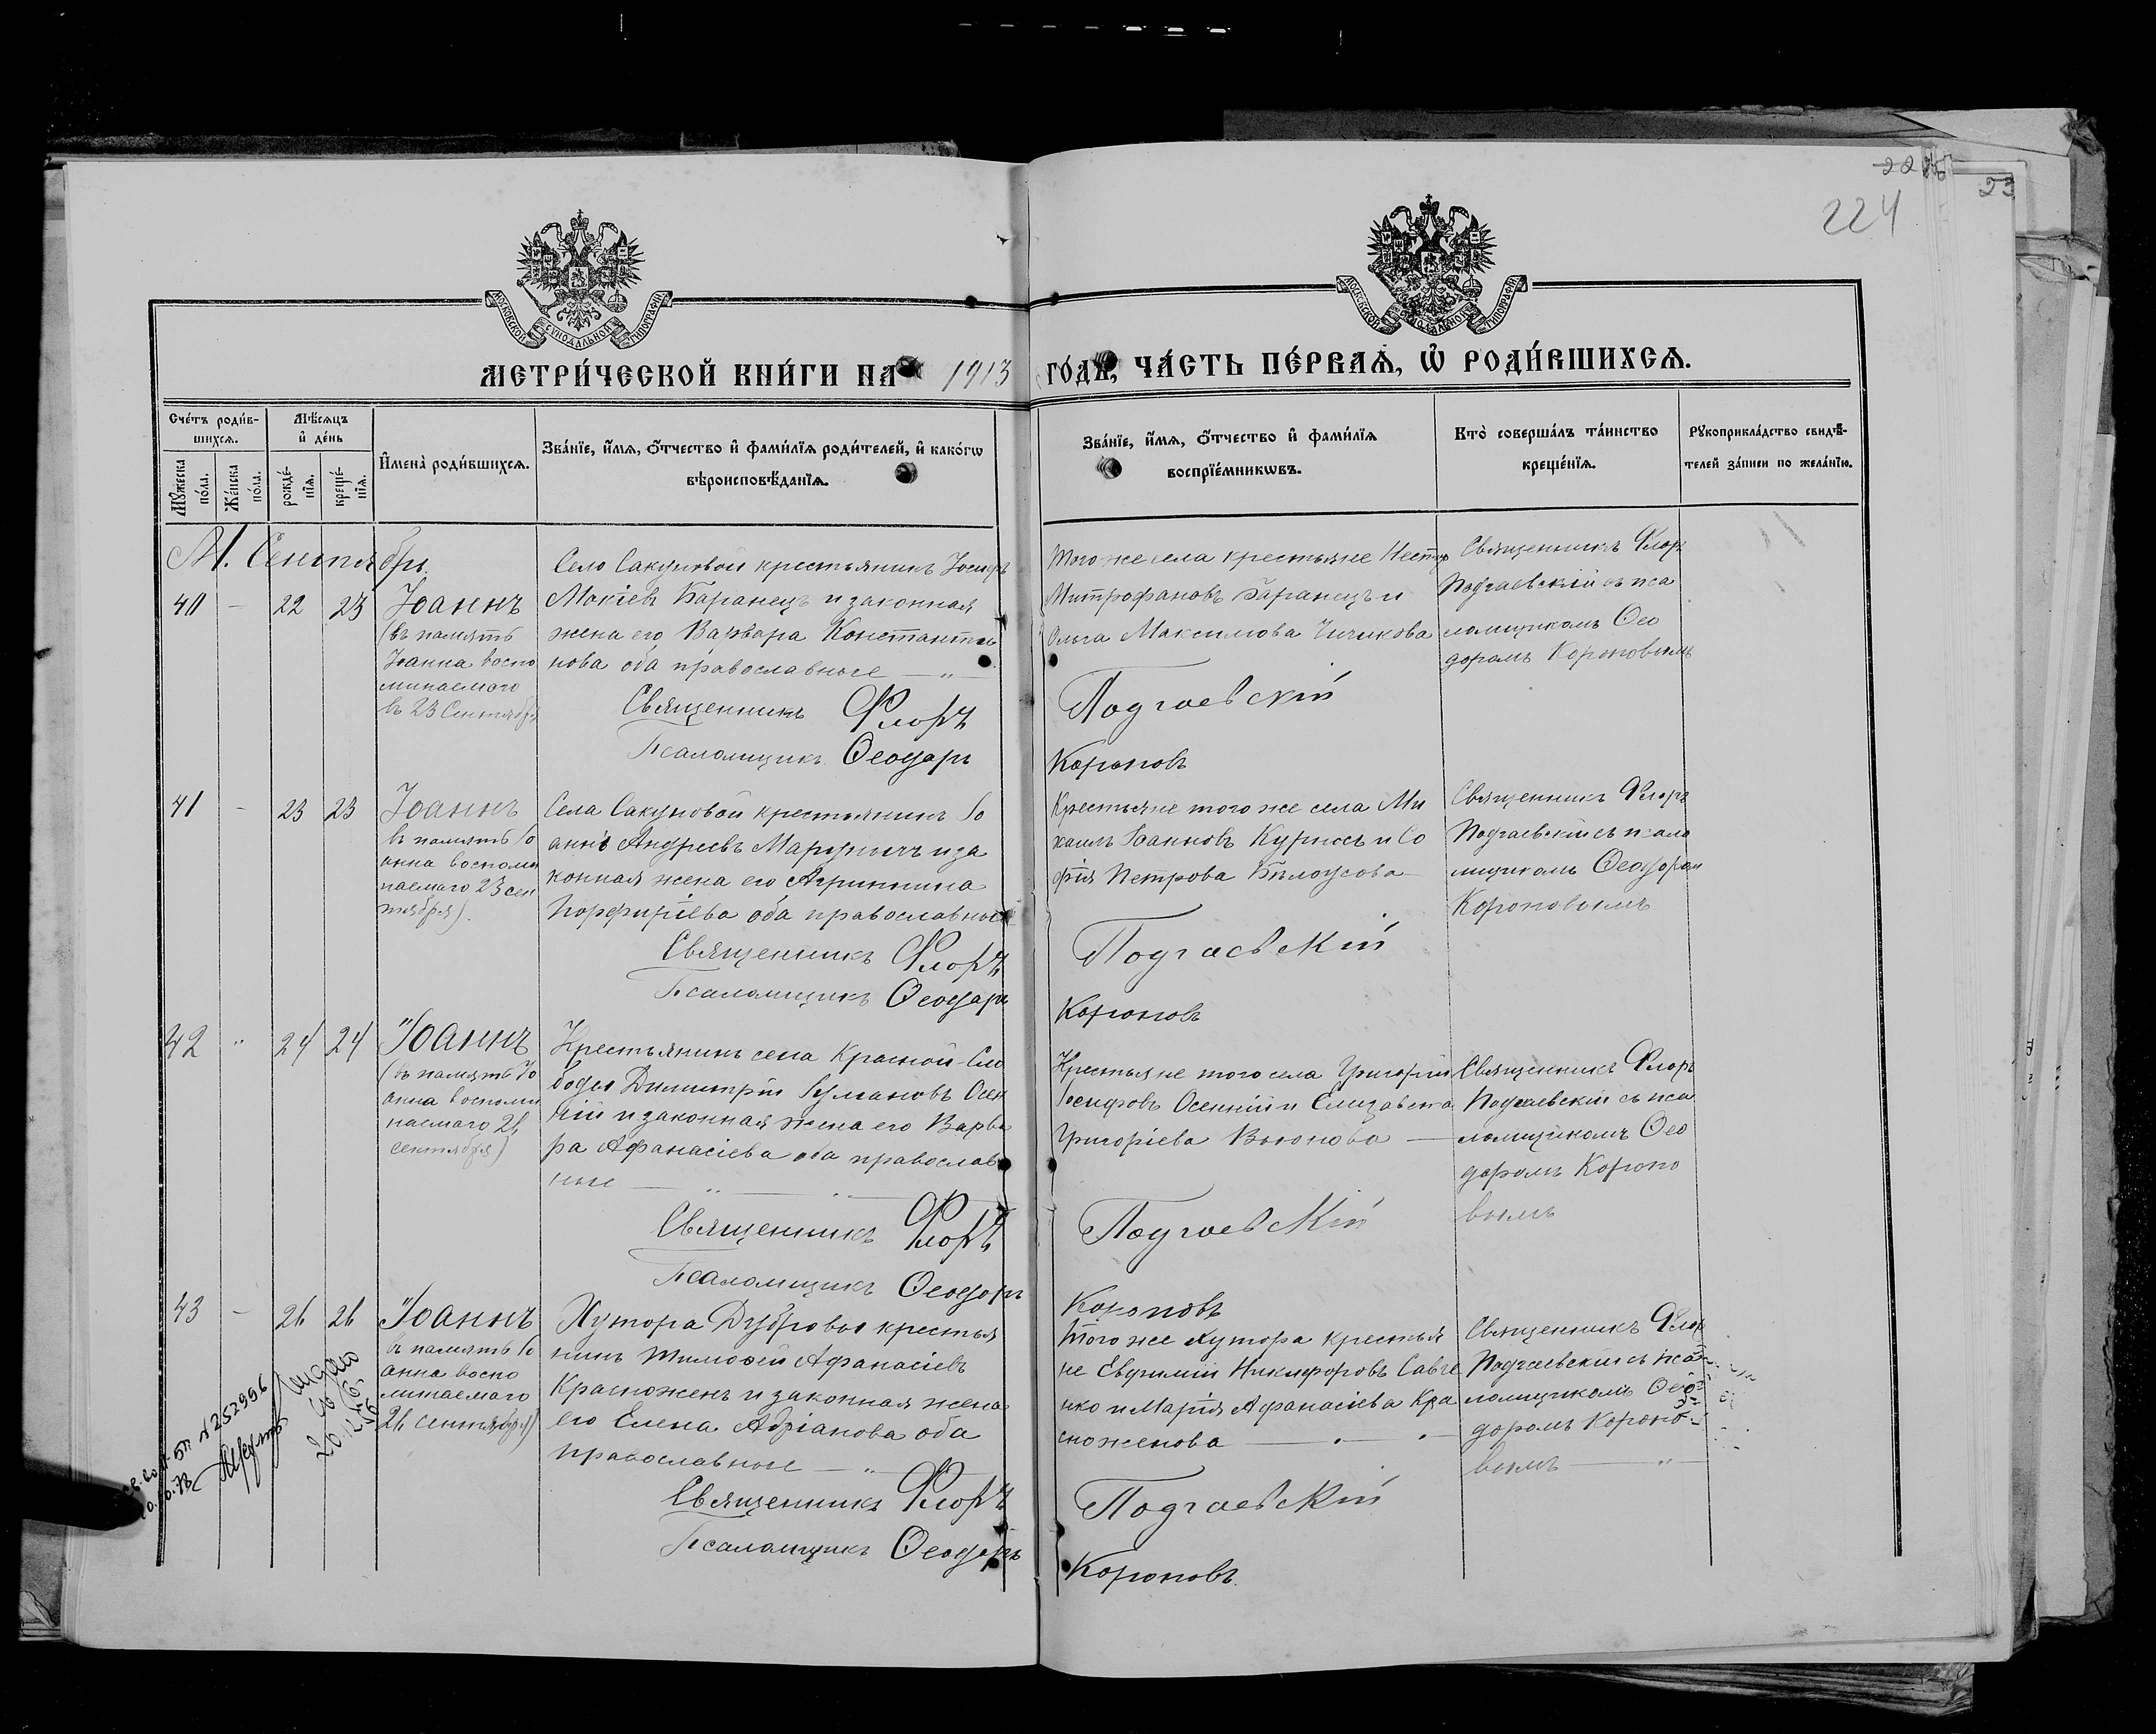 22
23
224
МОСКОВСКОЙ СѴНОДАЛЬНОЙ ТИПОГРАФІИ
МОСКОВСКОЙ СѴНОДАЛЬНОЙ ТИПОГРАФІИ
МЕТРИ́ЧЕСКОЙ КНИ́ГИ НА 1913 ГО́ДЪ, ЧА́СТЬ ПЕ́РВАѦ, Ѡ҆ РОДИ́ВШИХСѦ.
Сче́тъ роди́в-
шихсѧ.
Мѣ́сѧцъ
и҆ де́нь
Мꙋ́жеска
по́ла.
Же́нска
по́ла.
рожде́-
нїѧ.
креще́-
нїѧ.
И҆мена̀ роди́вшихсѧ.
Зва́нїе, и҆́мѧ, о҆́тчество и҆ фами́лїѧ роди́телей, и҆ како́гѡ
вѣроисповѣ́данїѧ.
Зва́нїе, и҆́мѧ, о҆́тчество и҆ фами́лїѧ
воспрїе́мникѡвъ.
Кто̀ соверша́лъ та́инство
креще́нїѧ.
Рꙋкоприкла́дство свидѣ́-
телей за́писи по жела́нїю.
М. Сентябрь.
40 - 22 23 Іоаннъ
(въ память
Іоанна воспо
минаемаго
въ 23 Сентября
Село Сакуновой крестьянинъ Іосифъ
Мокіевъ Баранецъ и законная
жена его Варвара Константи
нова оба православные — „ —
Священникъ Флоръ
Псаломщикъ Ѳеодоръ
Того же села крестьяне Несторъ
Митрофановъ Баранецъ и
Ольга Максимова Чичикова
Подгаевскій
Короповъ
Священникъ Флоръ
Подгаевскій съ пса
ломщикомъ Ѳео
доромъ Короповымъ
41 - 23 23 Іоаннъ
въ память Іо
анна воспоми
наемаго 23 сен
тября).
Села Сакуновой крестьянинъ Іо
аннъ Андреевъ и за
конная жена его Агриппина
Порфиріева оба православные
Священникъ Флоръ
Псаломщикъ Ѳеодоръ
Крестьяне того же села Ми
хаилъ Іоанновъ и Со
фія Петрова Бѣлоусова
Подгаевскій
Короповъ
Священникъ Флоръ
Подгаевскій съ псало
мщикомъ Ѳеодоромъ
Короповымъ
42 „ 24 24 Іоаннъ
(въ память Іо
анна воспоми
наемаго 26
сентября)
Крестьянинъ села Красной-Сло
боды Димитрій Осен
ній и законная жена его Варва
ра Афанасіева оба православ
ные — „ — „ —
Священникъ Флоръ
Псаломщикъ Ѳеодоръ
Крестьяне того села Григорій
Іосифовъ Осенній и Елизавета
Григоріева Вьюнова —
Подгаевскій
Короповъ
Священникъ Флоръ
Подгаевскій съ пса
ломщикомъ Ѳео
доромъ Коропо
вымъ
43 - 26 26 Іоаннъ
въ память Іо
анна воспо
минаемаго
26 сентября)
Хутора Дубровы крестья
нинъ Тимоѳей Афанасіевъ
Красноженъ и законная жена
его Елена Адріанова оба
православные — „ —
Священникъ Флоръ
Псаломщикъ Ѳеодоръ
Того же хутора крестья
не Евфимій Никифоровъ Савче
нко и Марія Афанасіева Кра
сноженова —
Подгаевскій
Короповъ
Священникъ Флоръ
Подгаевскій съ пса
ломщикомъ Ѳео
доромъ Коропо
вымъ — „ —
№ 252996